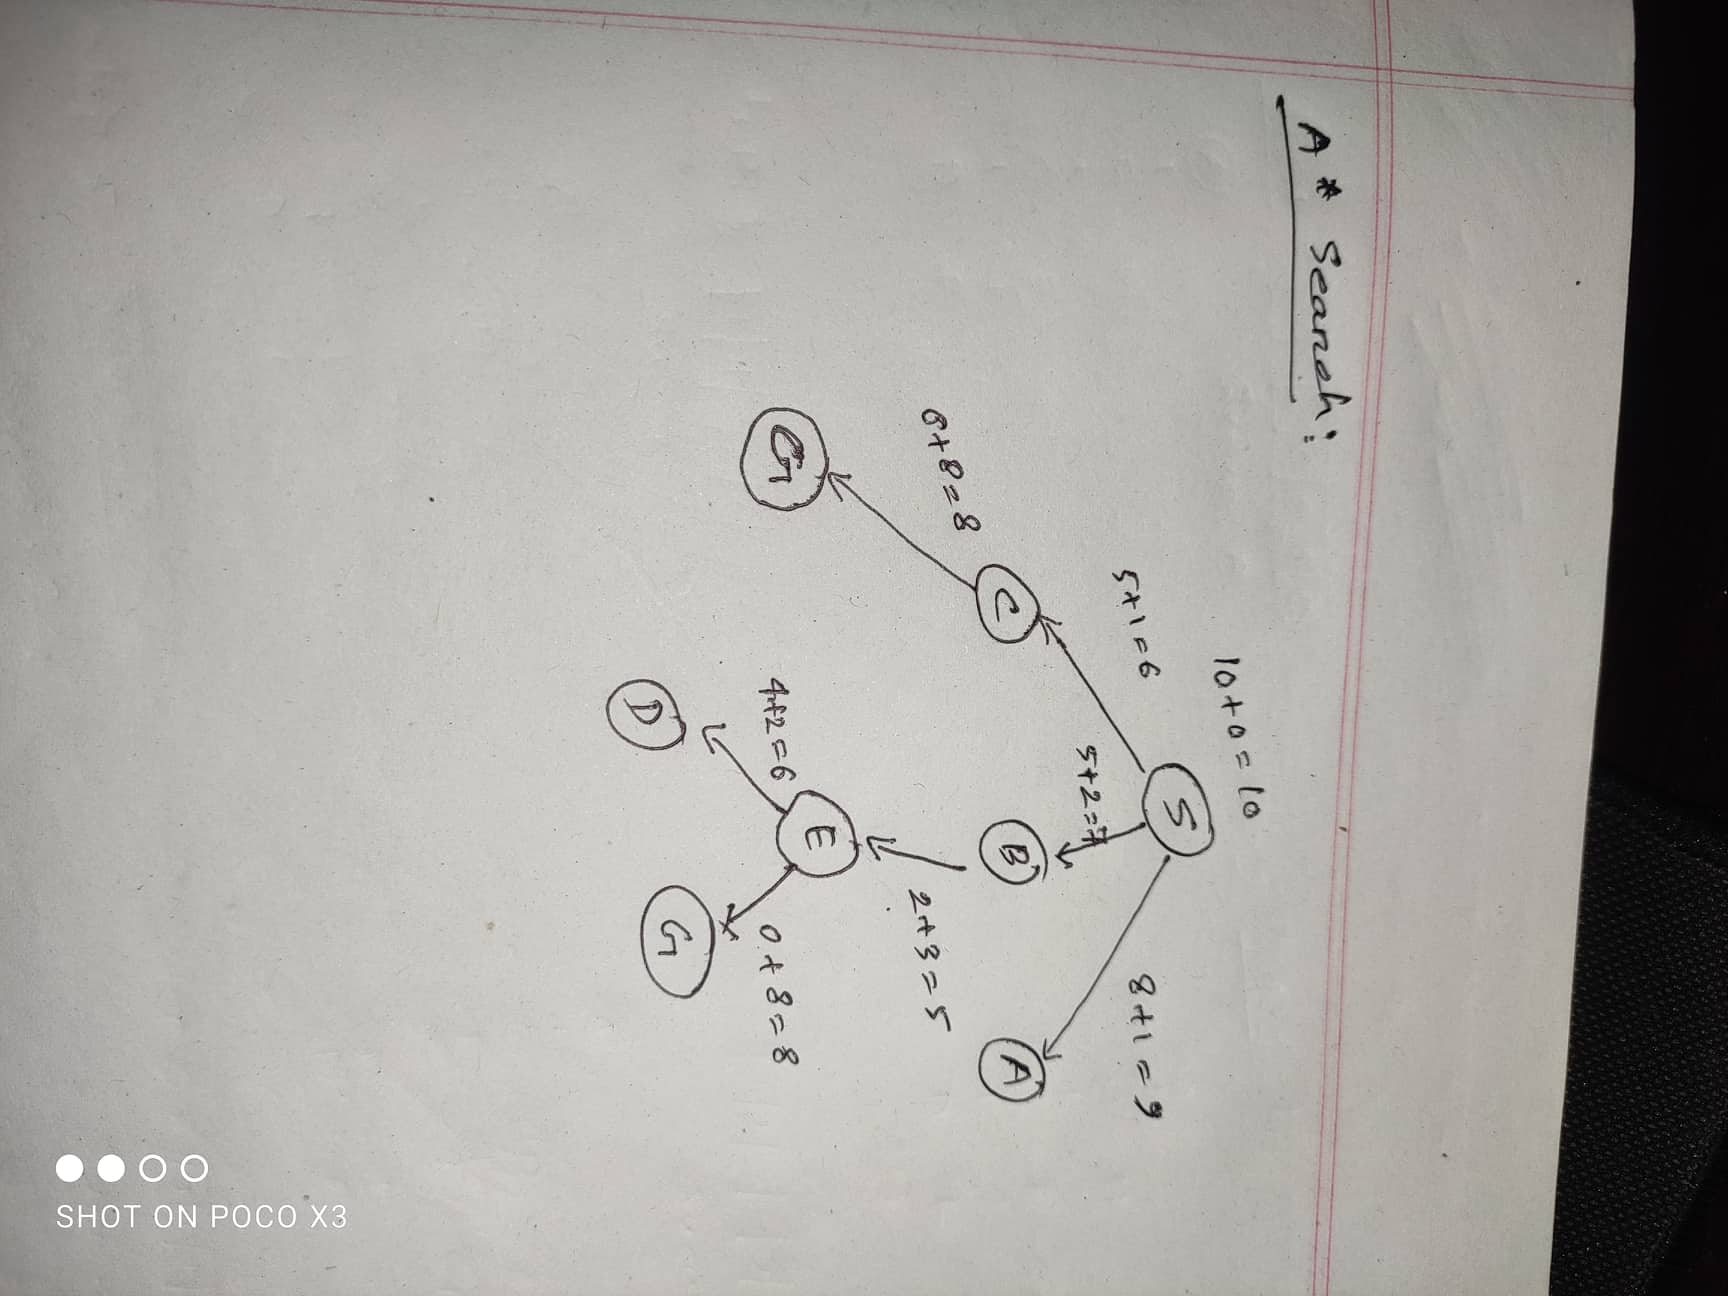 A* Search:
10+0=10
5+1=6
5+2=7
8+1=9
S
C
B
A
0+8=8
2+3=5
G
E
4+2=6
0+8=8
D
G
SHOT ON POCO X3